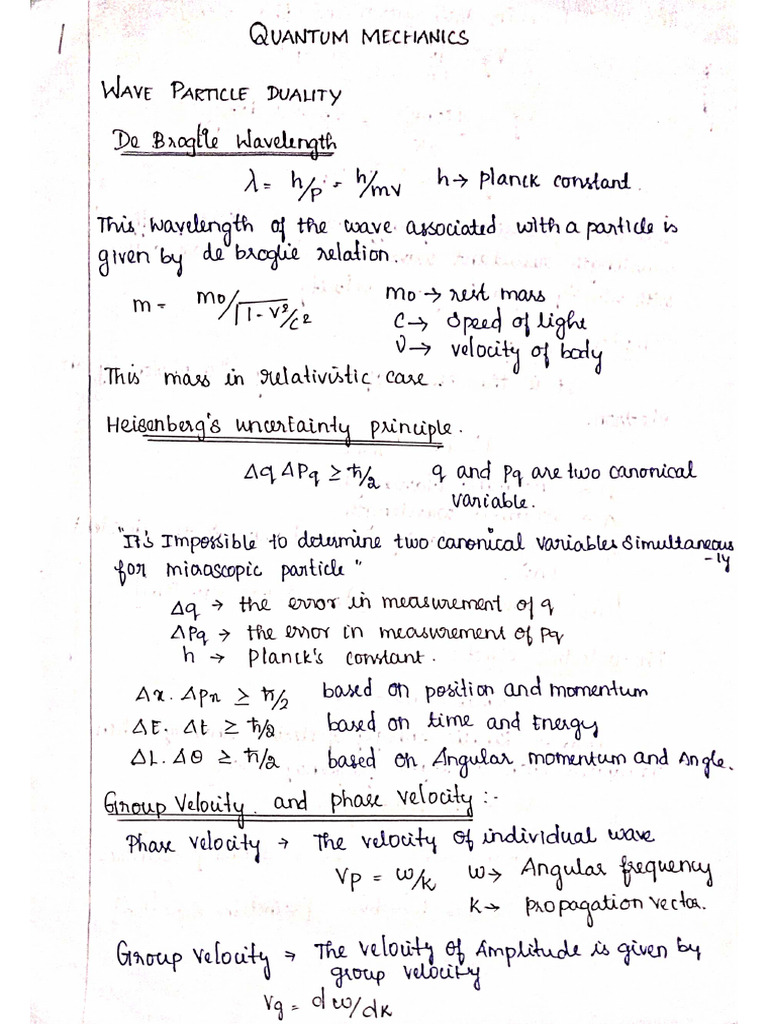 1
QUANTUM MECHANICS
WAVE PARTICLE DUALITY
De Broglie Wavelength
λ = h/p = h/mv   h → Planck constant.
This wavelength of the wave associated with a particle is
given by de broglie relation.
m = mo/√1 - v²/c²   mo → rest mass
c → Speed of light
v → velocity of body
This mass in relativistic case.
Heisenberg's uncertainty principle.
Δq ΔPq ≥ ħ/2   q and Pq are two canonical
variable.
"It's Impossible to determine two canonical variables Simultaneous
-ly
for microscopic particle"
Δq → the error in measurement of q
ΔPq → the error in measurement of Pq
h → Planck's constant.
Δx. ΔPx ≥ ħ/2   based on position and momentum
ΔE. Δt ≥ ħ/2   based on time and Energy
ΔL. Δθ ≥ ħ/2   based on Angular momentum and Angle.
Group Velocity and phase velocity :-
Phase velocity → The velocity of individual wave
Vp = ω/k   ω → Angular frequency
k → propagation vector.
Group velocity → The velocity of Amplitude is given by
group velocity
Vg = dω/dk